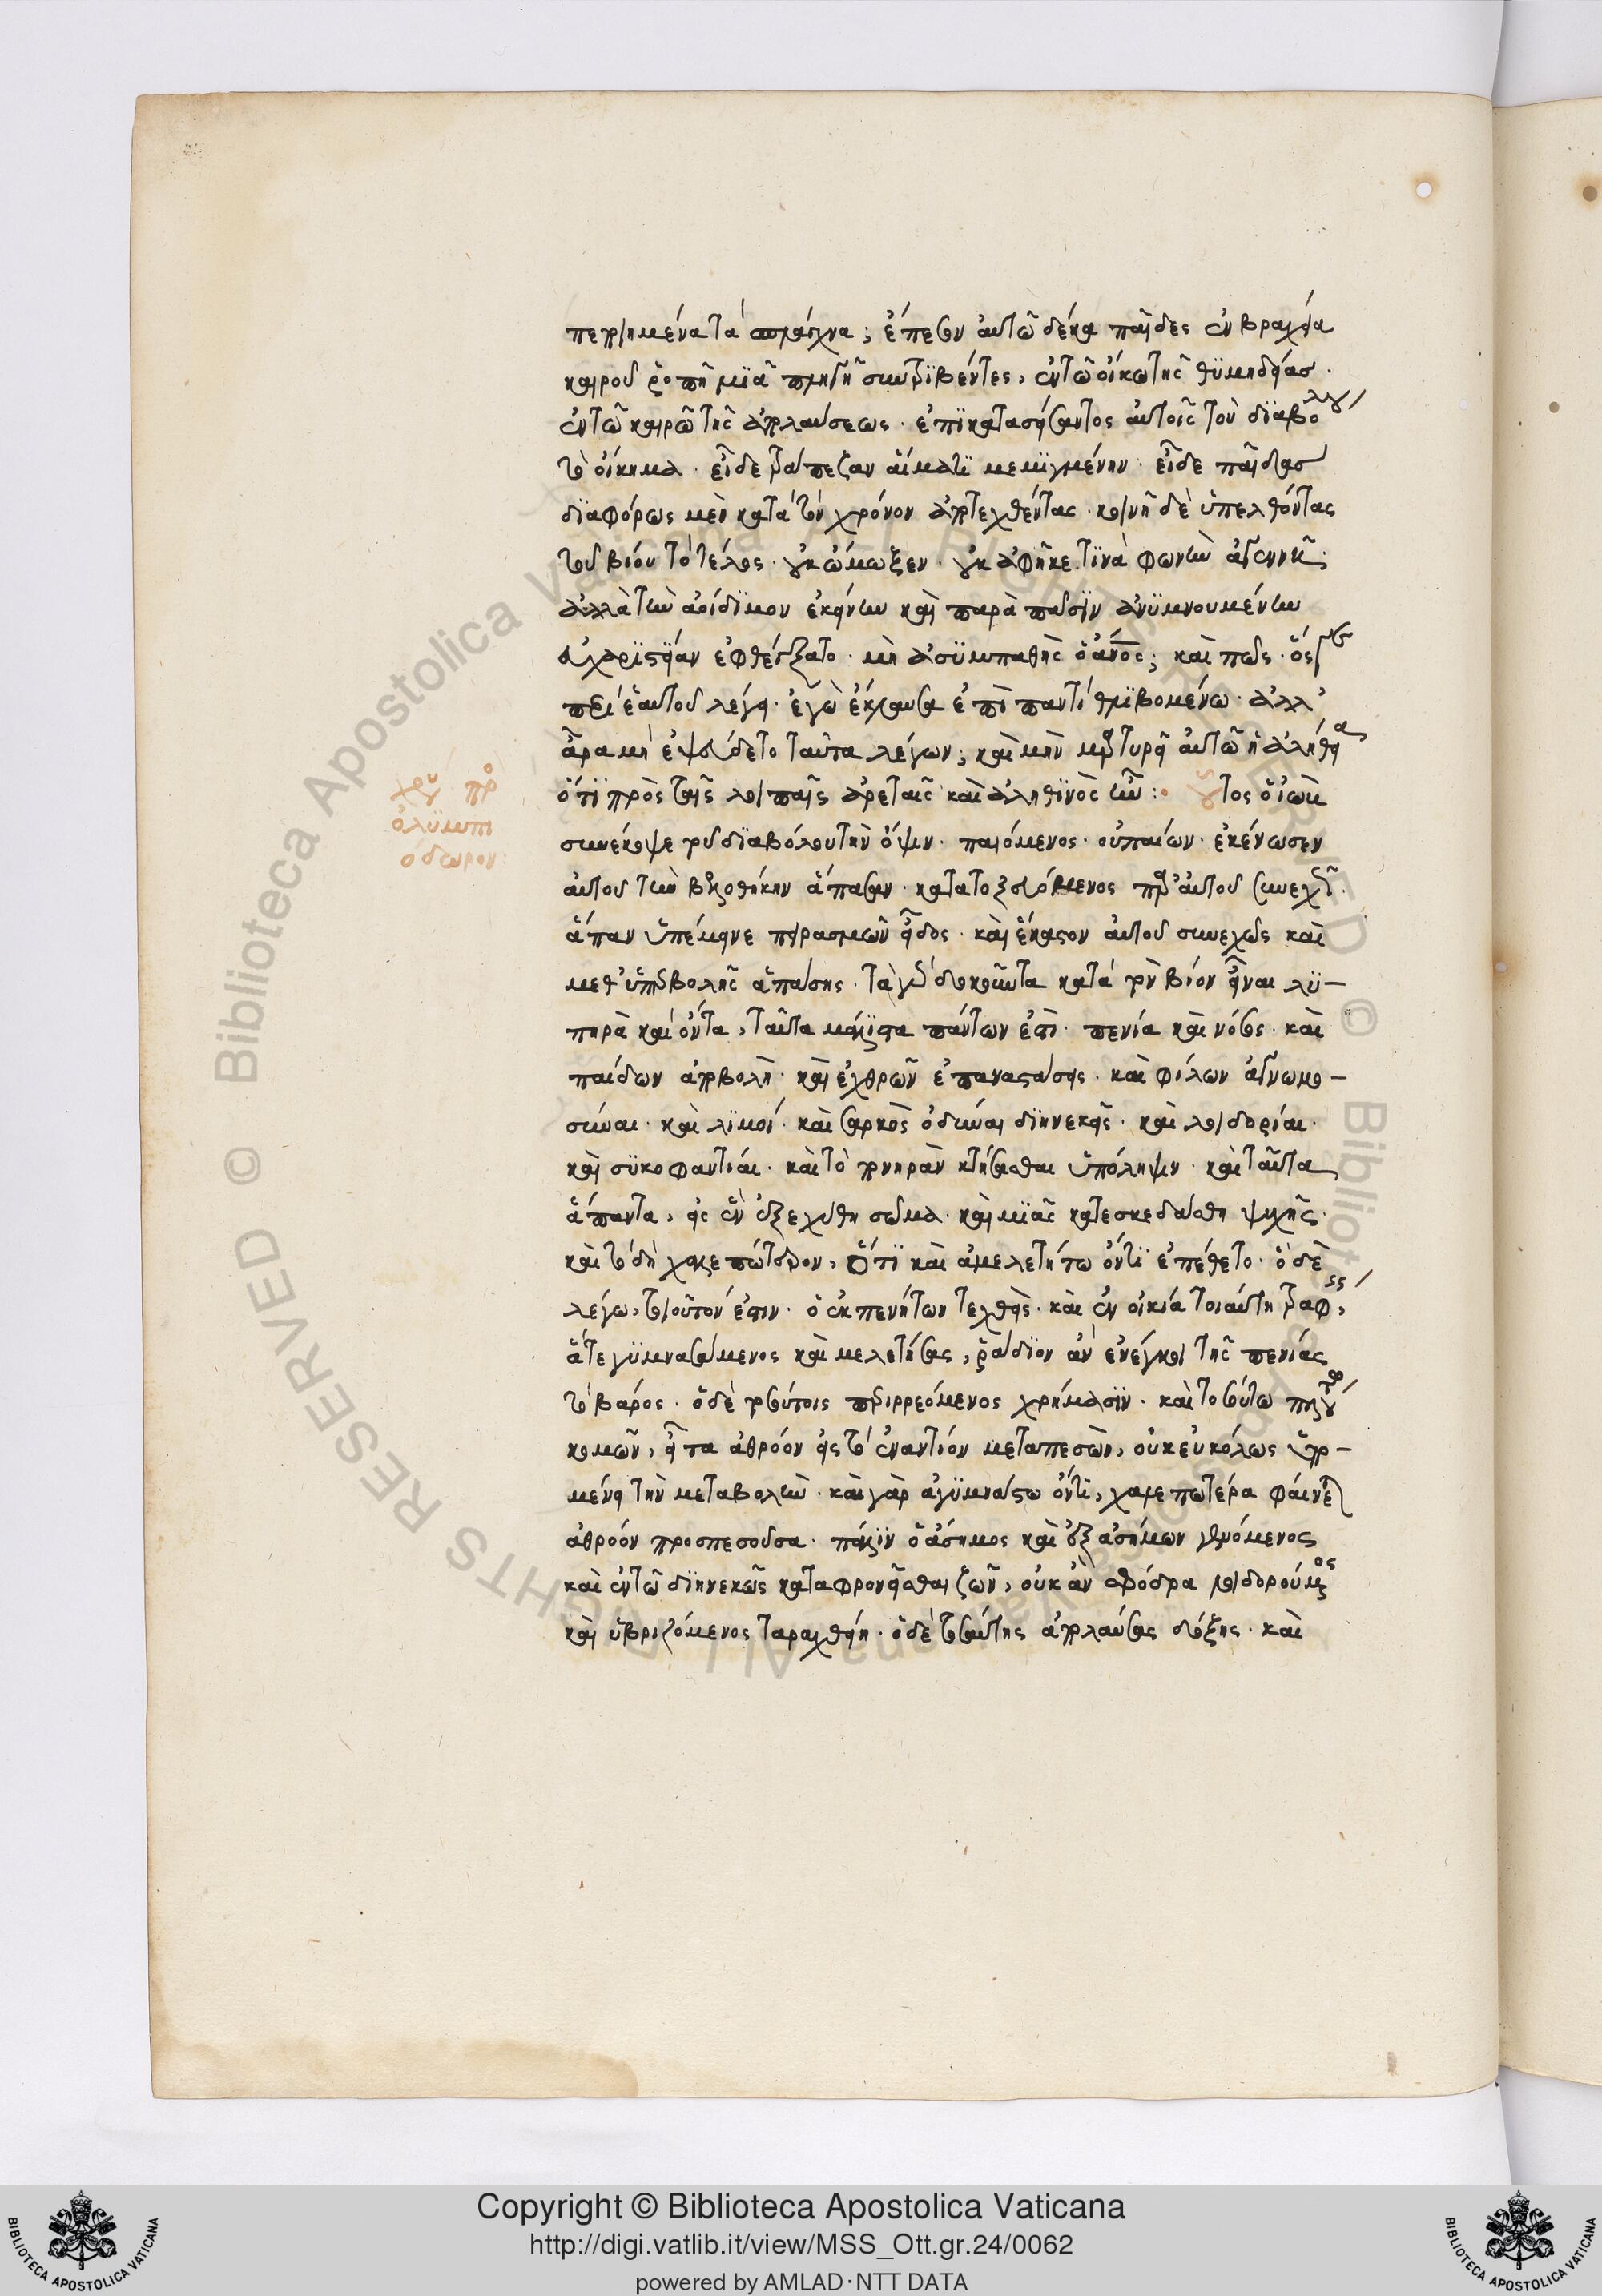 πεπηρμένα τὰ σπλάγχνα; ἔπεσον αὐτῶ δέκα παῖδες ἐν βραχεία
καιροῦ ῥοπῆ μϊᾶ πληγῆ συντρϊβέντες, ἐν τῶ οἴκω τῆς θϋμηδίας.
ἐν τῶ καιρῶ τῆς ἀπολαύσεως. ἐπϊκατασείσαντος αὐτοῖς τοῦ δϊαβόλου
τὸ οἴκημα. εἶδε τράπεζαν αἵματϊ μεμϊγμένην. εἶδε παῖδας
δϊαφόρως μὲν κατὰ τὸν χρόνον ἀποτεχθέντας. κοινῆ δὲ ὑπελθόντας
τοῦ βίου τὸ τέλος. οὐκ ὤμωξεν. οὐκ ἀφῆκε τϊνὰ φωνὴν ἀγεννῆ;
ἀλλὰ τὴν ἀοίδϊμον ἐκείνην καὶ παρὰ πᾶσϊν ἀνϋμνουμένην
εὐχαρϊστίαν ἐφθέγξατο. μὴ ἀσϋμπαθὴς ὁ ἄνος; καὶ πῶς. ὅς γε
περὶ ἑαυτοῦ λέγει. ἐγὼ ἔκλαυσα ἐπὶ παντὶ θλϊβομένω. ἀλλ'
ἆρα μὴ ἐψεύδετο ταῦτα λέγων; καὶ μὴν μαρτυρεῖ αὐτῶ ἡ ἀλήθεια
ὅτϊ πρὸς ταῖς λοιπαῖς ἀρεταῖς καὶ ἀληθϊνὸς ἦν: οὗτος ὁ ἰὼβ
χρυ πρ
ὀλϋμπι
όδωρον:
συνέκοψε τοῦ δϊαβόλου τὴν ὄψιν. παιόμενος. οὐ παίων. ἐκένωσεν
αὐτοῦ τὴν βελοθήκην ἅπασαν. κατατοξευόμενος παρ' αὐτοῦ συνεχῶς.
ἅπαν ὑπέμεινε πειρασμῶν εἶδος. καὶ ἕκαστον αὐτοῦ συνεχῶς καὶ
μεθ' ὑπερβολῆς ἁπάσης. τὰ γὰρ δοκοῦντα κατὰ τὸν βίον εἶναι λϋ-
πηρὰ καὶ ὄντα, ταῦτα μάλϊστα πάντων ἐστὶ. πενία καὶ νόσος. καὶ
παίδων ἀποβολὴ. καὶ ἐχθρῶν ἐπαναστάσεις. καὶ φίλων ἀγνωμο-
σύναι. καὶ λϊμοί. καὶ σαρκὸς ὀδύναι δϊηνεκεῖς. καὶ λοιδορίαι.
καὶ σϋκοφαντίαι. καὶ τὸ πονηρὰν κτήσασθαι ὑπόληψιν. καὶ ταῦτα
ἅπαντα, εἰς ἓν ἐξεχύθη σῶμα. καὶ μϊᾶς κατεσκεδάσθη ψυχῆς.
καὶ τὸ δὴ χαλεπώτερον, ὅτϊ καὶ ἀμελετήτω ὄντϊ ἐπέθετο. ὃ δὲ
λέγω, τοιοῦτόν ἐστιν. ὁ ἐκ πενήτων τεχθεὶς. καὶ ἐν οἰκία τοιαύτη τραφεὶς,
ἅτε γϋμνασάμενος καὶ μελετήσας, ῥάδϊον ἂν ἐνέγκοι τῆς πενίας
τὸ βάρος. ὁ δὲ τοσούτοις περιρρεόμενος χρήμασϊν. καὶ τοσούτω πλούτω
κομῶν, εἶτα ἀθρόον εἰς τὸ ἐναντίον μεταπεσὼν, οὐκ εὐκόλως ὑπο-
μένει τὴν μεταβολὴν. καὶ γὰρ ἀγϋμνάστω ὄντϊ, χαλεπωτέρα φαίνεται
ἀθρόον προσπεσοῦσα. πάλϊν ὁ ἄσημος καὶ ἐξ ἀσήμων γενόμενος
καὶ ἐν τῶ δϊηνεκῶς καταφρονεῖσθαι ζῶν, οὐκ ἂν σφόδρα λοιδορούμενος
καὶ ὑβριζόμενος ταραχθείη. ὁ δὲ τοσαύτης ἀπολαύσας δόξης. καὶ
Copyright © Biblioteca Apostolica Vaticana
http://digi.vatlib.it/view/MSS_Ott.gr.24/0062
powered by AMLAD·NTT DATA